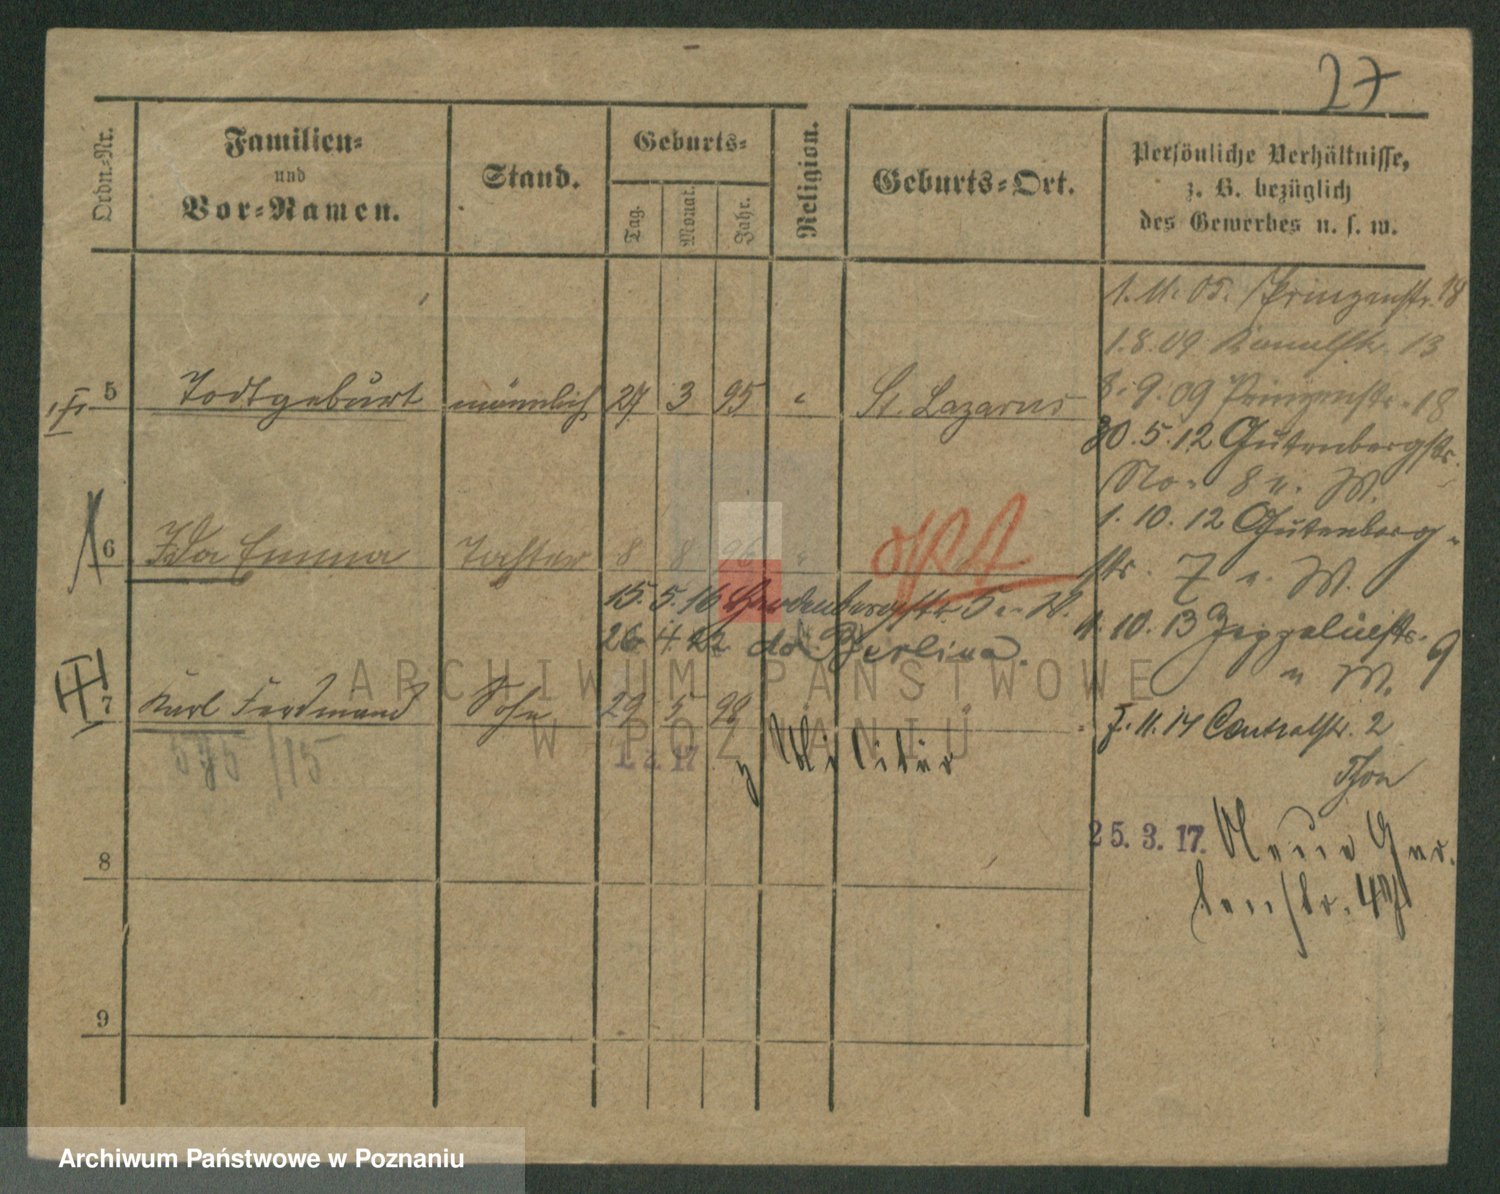 27
Ordn.-Nr.
Familien-
und
Vor-Namen.
Stand.
Geburts-
Tag.
Monat.
Jahr.
Religion.
Geburts-Ort.
Persönliche Verhältnisse,
z. B. bezüglich
des Gewerbes u. s. w.
1. 11. 05. Prinzenstr. 18
1. 8. 09 Kanalstr. 13
5 Todtgeburt männlich 27 3 95 " St. Lazarus
8. 9. 09 Prinzenstr. 18
30. 5. 12 Gutenbergstr.
No. 8 u. W.
1. 10. 12 Gutenberg-
str. 7 u. W.
6 Ida Emma Tochter 8 8 96 "
15. 5. 16 Hardenbergstr. 5 u. W.
26. 4. 22 do Berlina.
1. 10. 13 Zeppelinstr. 9
u W.
7 Karl Ferdinand Sohn 29 5 98
7. 11. 14 Centralstr. 2
595/15
z Militär
25. 3. 17. Neue Gar-
tenstr. 49
8
9
ARCHIWUM PAŃSTWOWE
W POZNANIU
Archiwum Państwowe w Poznaniu